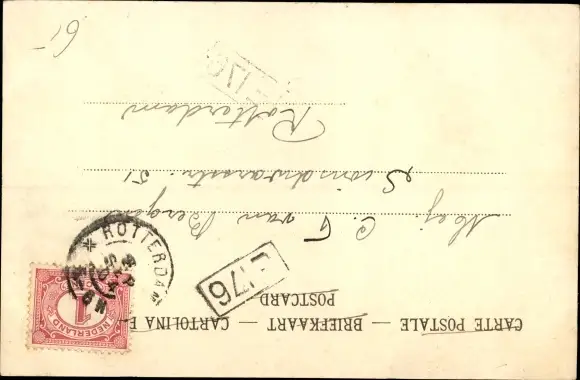 CARTE POSTALE — BRIEFKAART — CARTOLINA
POSTCARD
NEDERLAND
1
ROTTERDAM
176
Mej. C. F. van Bergen
51
Rotterdam
176
6-